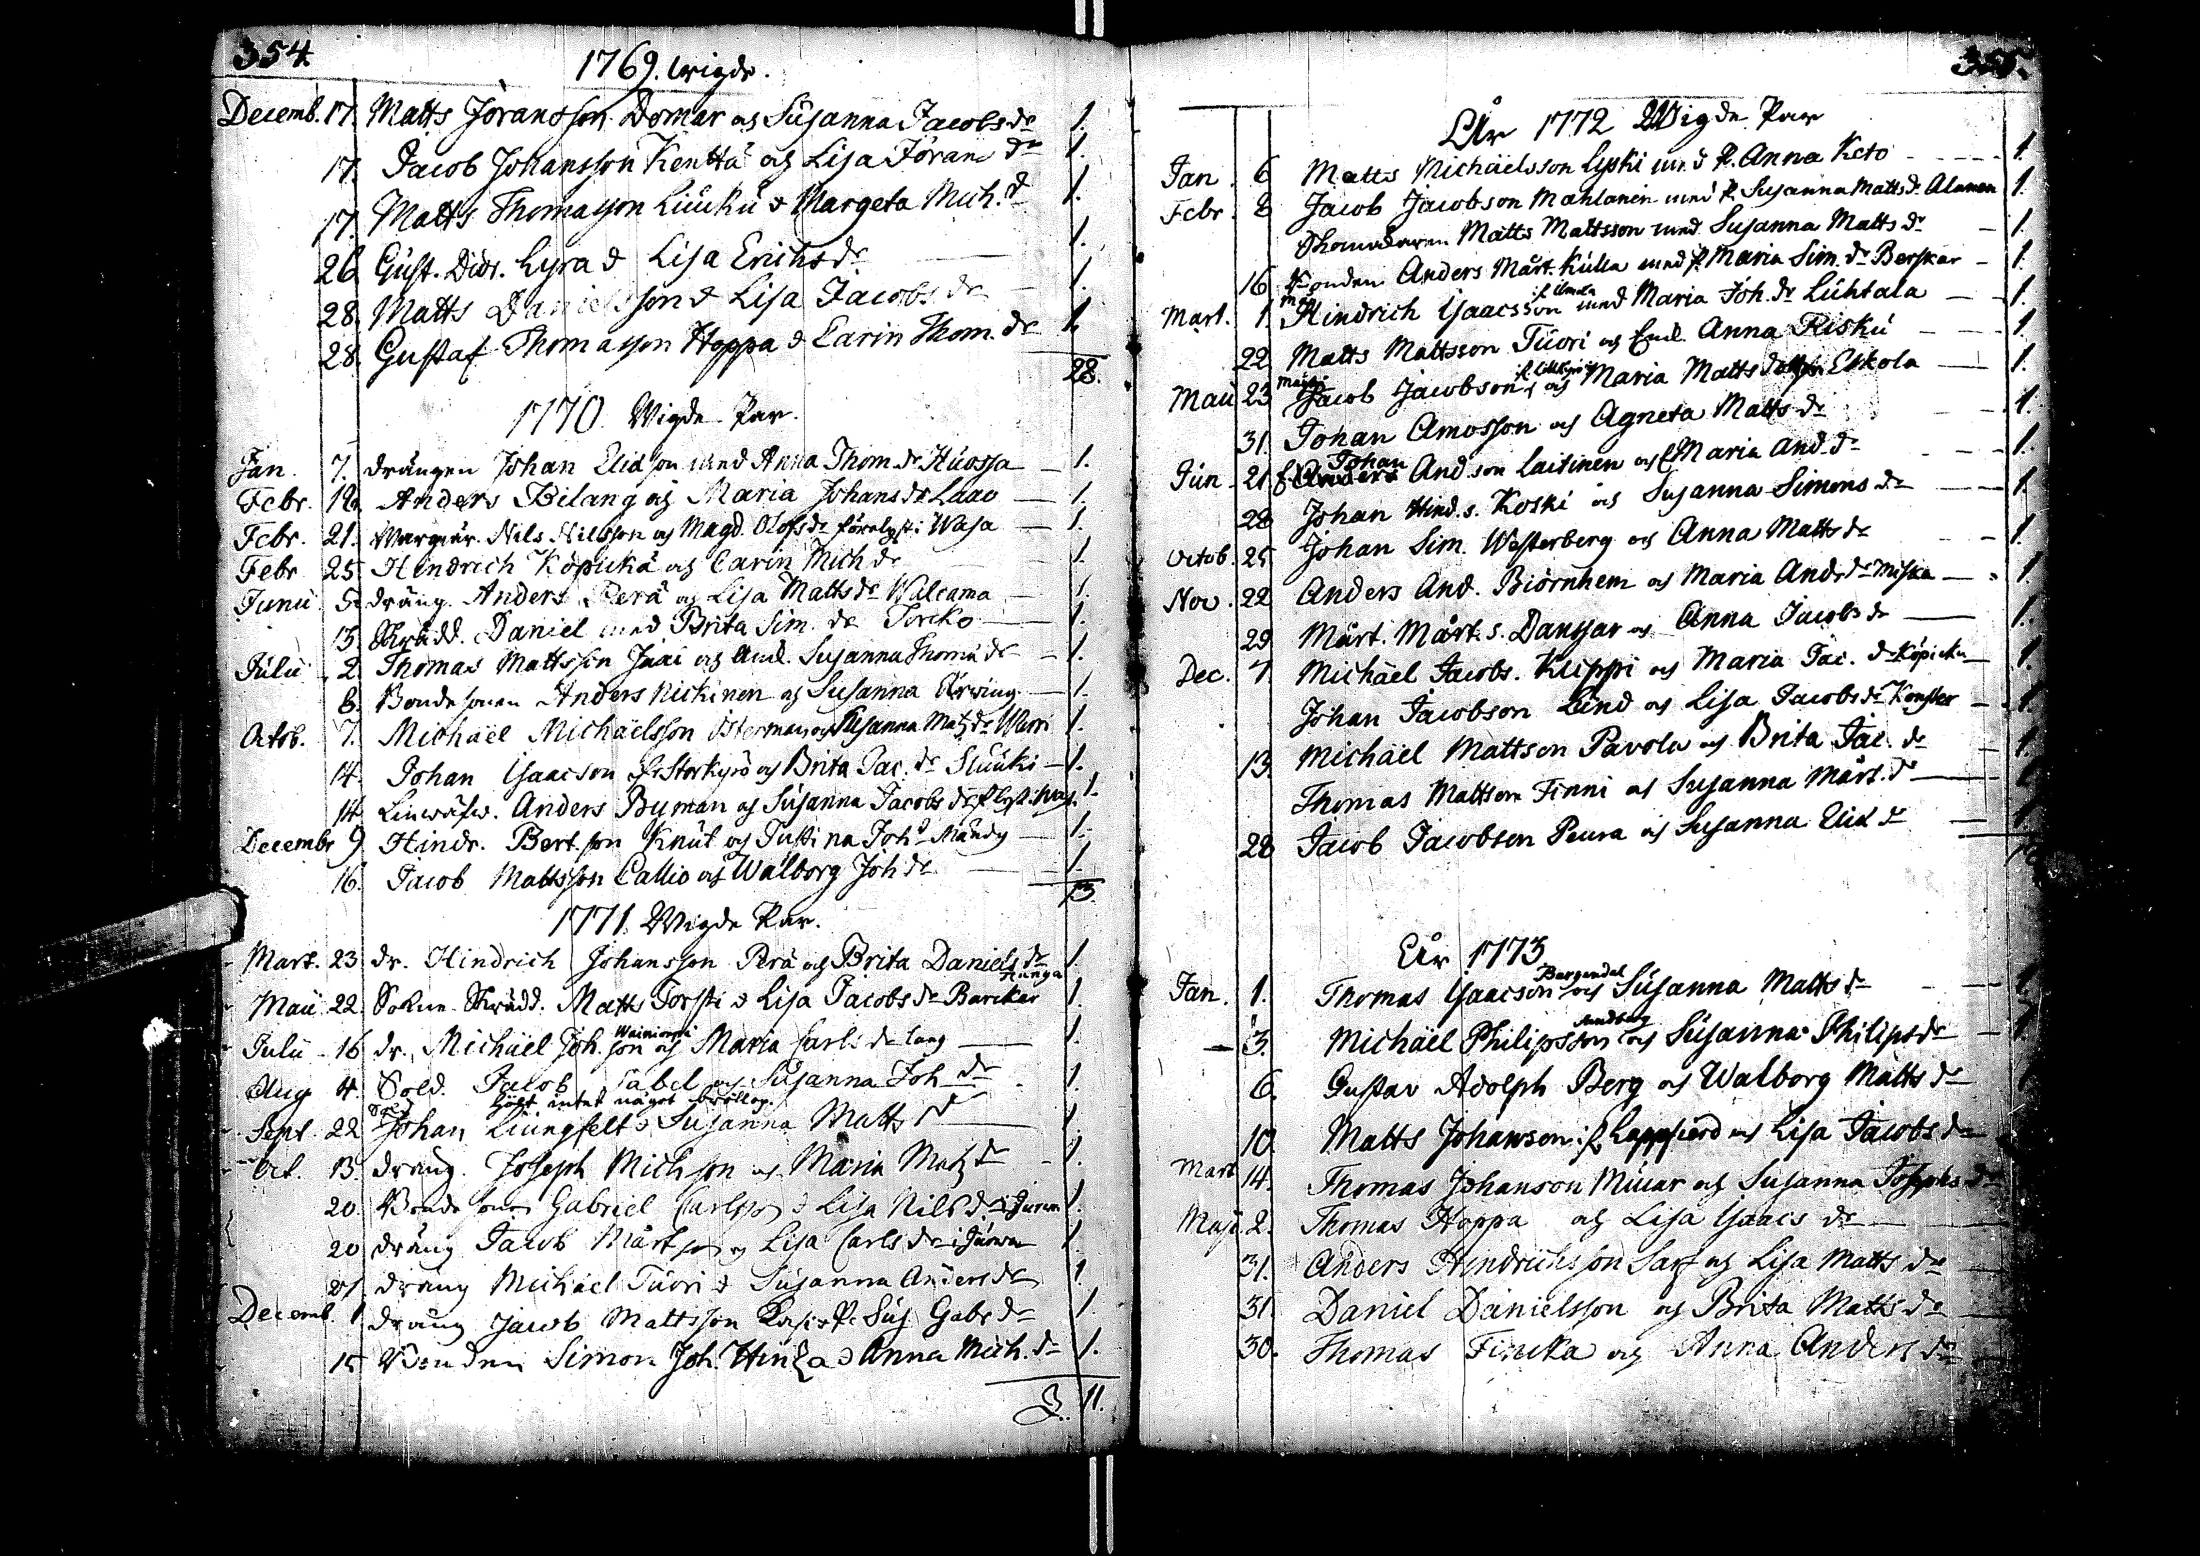 354.
1769. wigde.
Decemb. 17. Matts Joransson Domar og Susanna Jacobs dr 1.
17. Jacob Johansson Kentta og Lisa Joran dr 1.
17. Matts Thomasson Liuku & Margeta Mich. dr 1.
26. Gust. Didr. Lyra & Lisa Erichs dr 1.
28. Matts Danielsson & Lisa Jacobs dr 1.
28. Gustaf Thomasson Hoppa & Carin Thom. dr 1.
28.
1770. Wigde Par.
Jan. 7. drängen Johan Elidson med Anna Thom. dr Huossa 1.
Febr. 18. Anders Bilang og Maria Johans dr Laao 1.
Febr. 21. Nils Nilsson og Magd. Olofs dr i Wasa 1.
Febr. 25. Hindrich Köpickä og Carin Mich dr 1.
Junii 5. dräng. Anders Perä og Lisa Matts dr Walcama 1.
13. Skrädd. Daniel med Brita Sim. dr Torcko 1.
Julii 2. Thomas Mattsson Jaai og Susanna Thoma dr 1.
8. Bondesonen Anders Nickinen og Susanna 1.
Octob. 7. Michäel Michäelsson Österman og Susanna Matz dr Warri 1.
14. Johan Isaacson fr. Storkyro og Brita Jac. dr Sluuki 1.
14. Linwäfw. Anders Byman og Susanna Jacobs dr 1.
Decembr 9. Hindr. Bert.son Knut og Justina Joh dr Mandy 1.
16. Jacob Mattsson Callio og Walborg Joh dr 1.
13.
1771. Wigde Par.
Mart. 23 dr. Hindrich Johansson Perä og Brita Daniels dr Hanga 1.
Maii 22. Sokne Skrädd. Matts Torsti & Lisa Jacobs dr Barckar 1.
Julii 16 dr. Michäel Joh.son og Maria Carls dr Lang 1.
Aug 4. Sold. Jacob Sabel og Susanna Joh dr 1.
höft intet något bröllop.
Sept 22 Sold Johan Liungfelt & Susanna Matts dr 1.
Oct. 13. dräng. Joseph Michson og Maria Matz dr 1.
20 Bondeson Gabriel Carlsson & Lisa Nils dr i Jurva 1.
20 dräng Jacob Mårtson og Lisa Carls dr i Jurva 1.
dräng Michael Tuori & Susanna Anders dr 1.
Decemb. 1 dräng Jacob Mattsson & P. Sus Gabr dr 1.
15 Bonden Simon Joh. & Anna Mich. dr 1.
11.
355.
År 1772 Wigde Par
Jan. 6 Matts Michäelsson Lyski med P. Anna Keto 1.
Febr. 8 Jacob Jacobson Mahlanen med P. Susanna Matts dr Alanen 1.
Matts Mattsson med Susanna Matts dr 1.
16 Bonden Anders Mårt. Kulla med P. Maria Sim. dr Berskar 1.
Mart. 1. Hindrich Isaacsson fr Ilmola med Maria Joh. dr Luhtala 1.
22 Matts Mattsson Tuori og Anna Risku 1.
Maii 23 Jacob Jacobson og Maria Matts dr Eskola 1.
31. Johan Amosson og Agneta Matts dr 1.
Jun 21 Johan Andson Laitinen og Maria And. dr 1.
28 Johan Hind. s. Koski og Susanna Simons dr 1.
Octob. 25 Johan Sim. Westerberg og Anna Matts dr 1.
Nov. 22 Anders And. Biörnhem og Maria And. dr Miska 1
29 Mårt. Mårt. s. Danssar og Anna Jacobs dr 1.
Dec. 7. Michäel Jacobs. Kuppi og Maria Jac. dr Köpicka 1.
Johan Jacobson Lind og Lisa Jacobs dr 1.
13. Michäel Mattson Pavola og Brita Jac. dr 1.
Thomas Mattson Finni og Susanna Mårt. dr 1
28 Jacob Jacobson Peura og Susanna Elid dr 1
År 1773
Jan. 1. Thomas Isaacson Bergendal og Susanna Matts dr 1
3. Michäel Philipsson Sandberg og Susanna Philips dr 1
6. Gustav Adolph Berg og Walborg Matts dr
10. Matts Johanson fr. Lappfierd og Lisa Jacobs dr
Mart 14. Thomas Johanson Muuar og Susanna Josephs dr
Maji 2. Thomas Hoppa og Lisa Isaacs dr
31. Anders Hindrichsson Sarf og Lisa Matts dr
31 Daniel Danielsson og Brita Matts dr
30. Thomas Fincka og Anna Anders dr